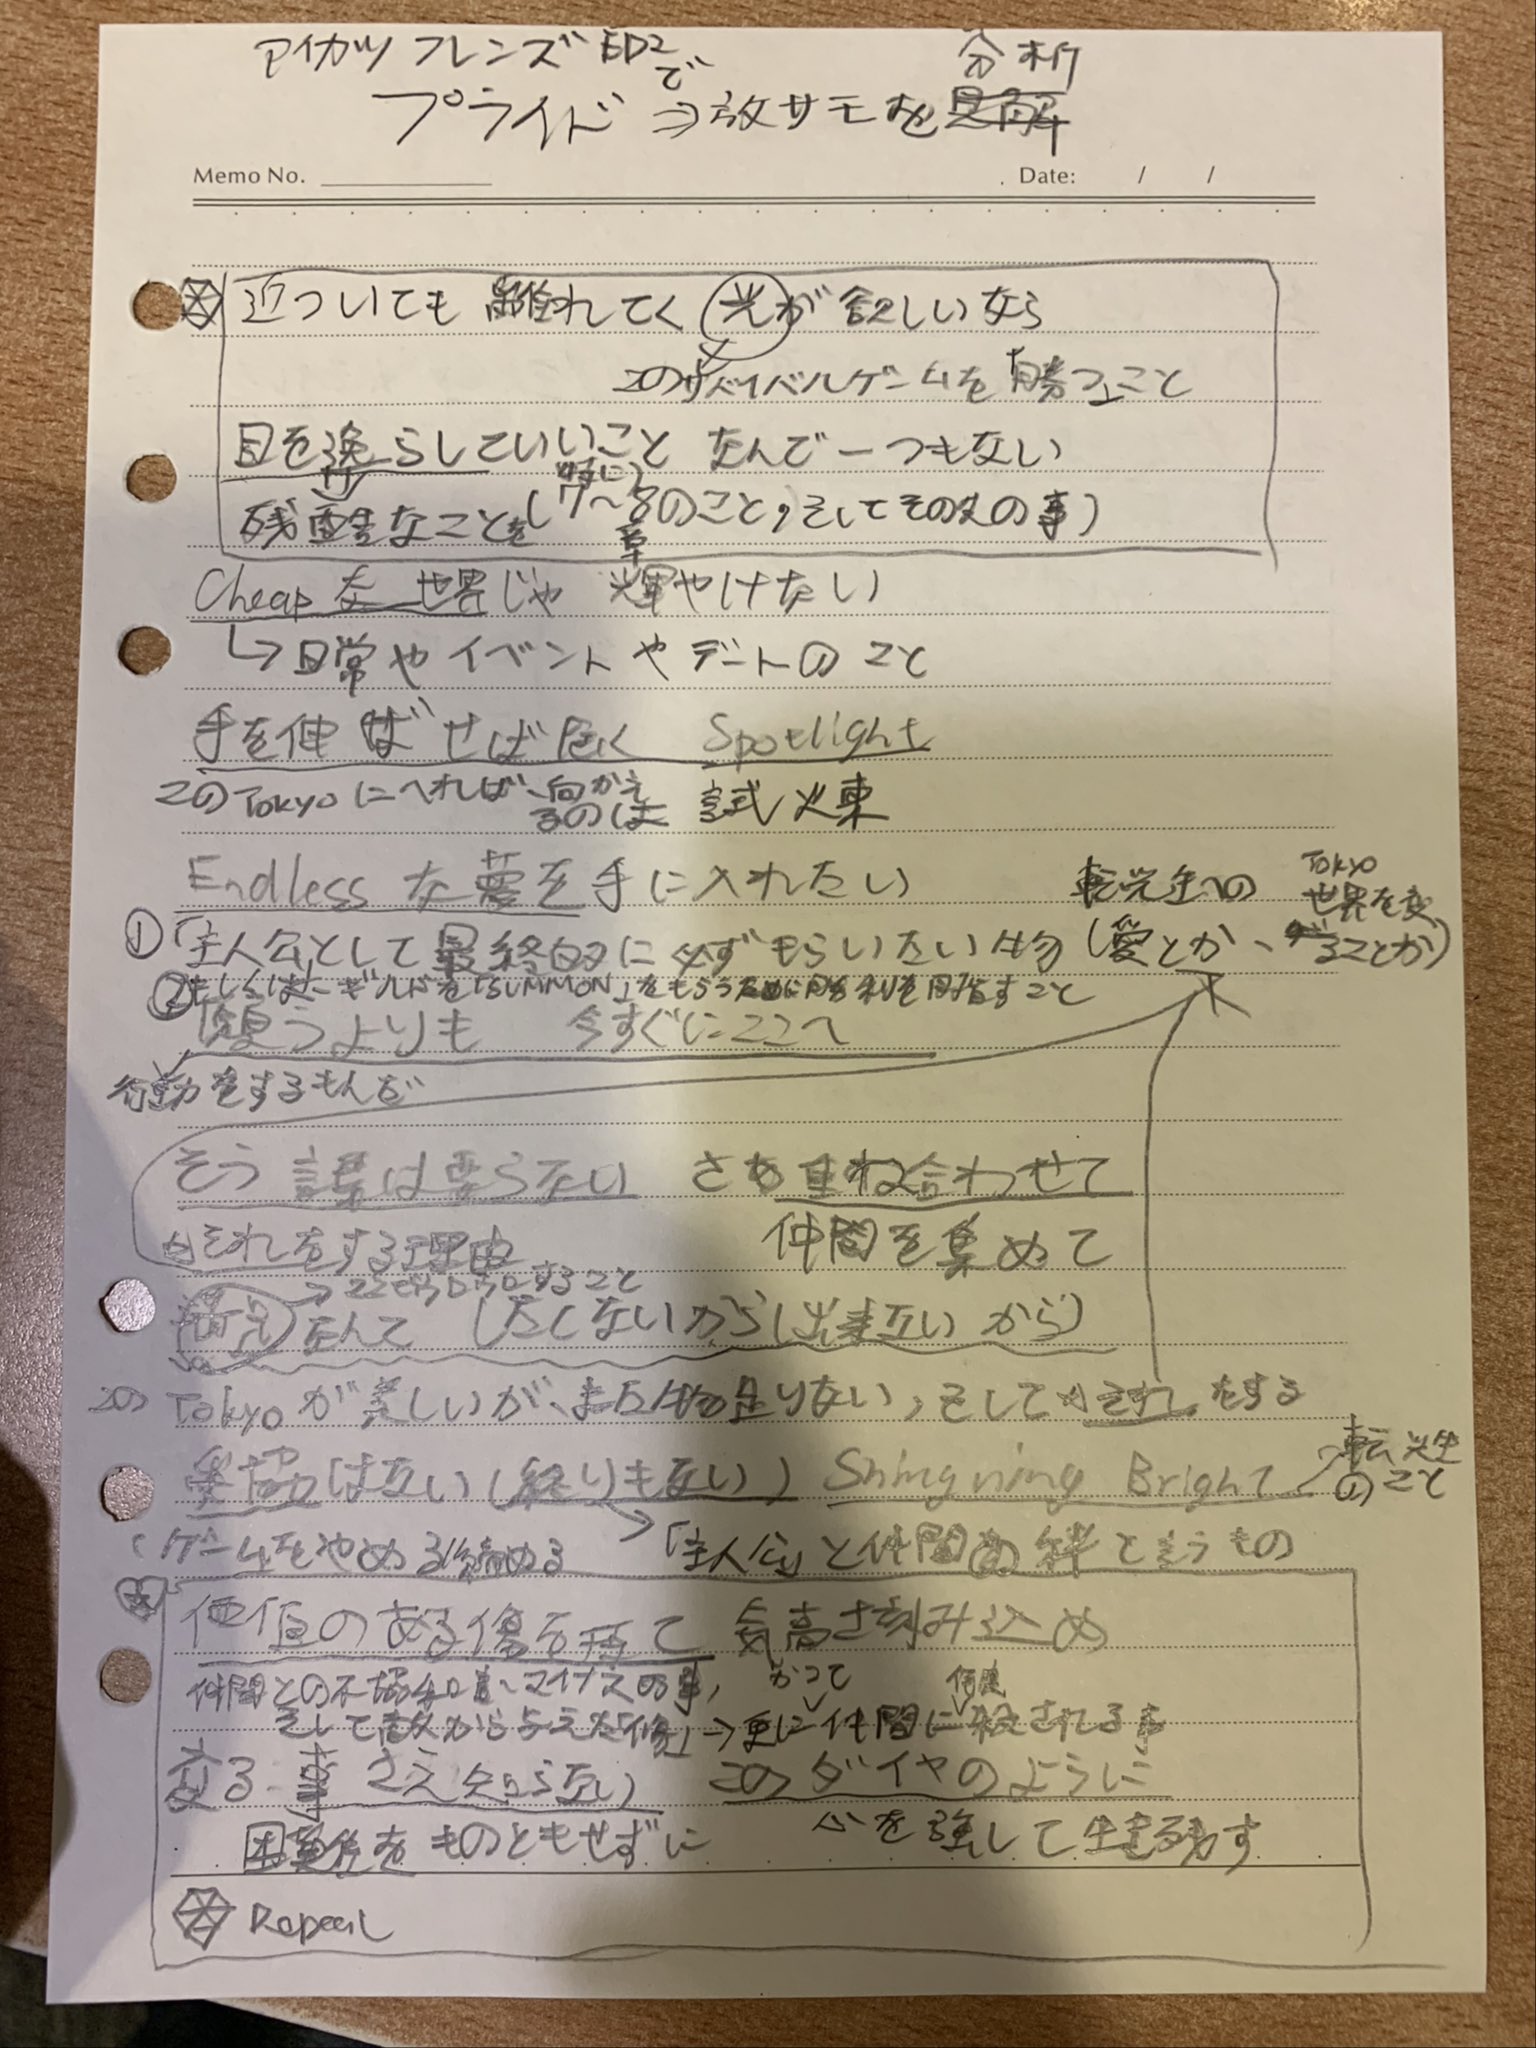 アイカツフレンズED2で 分析
プライド⇒放サモを見解
Memo No. Date: / /
近ついても 離れてく 光が欲しいなら
このサバイバルゲームを「勝つ」こと
目を逸らしていいこと なんで一つもない
残酷なことを(特に7〜8章のこと,そしてその次の事)
Cheapな世界じゃ 輝やけたい
↳日常やイベントやデートのこと
手を伸ばせば届く Spotlight
このTokyoに入れば、向かえるのは 試煉
Endlessな夢を手に入れたい
①「主人公」として最終的に必ずもらいたい物(愛とか、Tokyo世界を変ることか) 転光生への
②もしくは、ギルドを「SUMMON」をもらうために勝利を目指すこと
願うよりも 今すぐにここへ
行動をするもんだ
そう 言葉は要らない さあ重ね合わせて
それをする理由 仲間を集めて
なんて (たくないから(出来无いから)
このTokyoが美しいが、まだ物足りない,そして それ をする
妥協は无い(終りも无い) Shingning Bright 転光生のこと
ゲームをやめる/諦める 「主人公」と仲間の絆と言うもの
価値のある傷を持て 気高さ刻み込め
仲間との不協和音、マイナスの事, かつて 何度
そして敵から与えた「傷」→更に仲間に殺される事
変る事さえ知ら无い このダイヤのように
困難をものともせずに 心を強して生き残す
Repeat